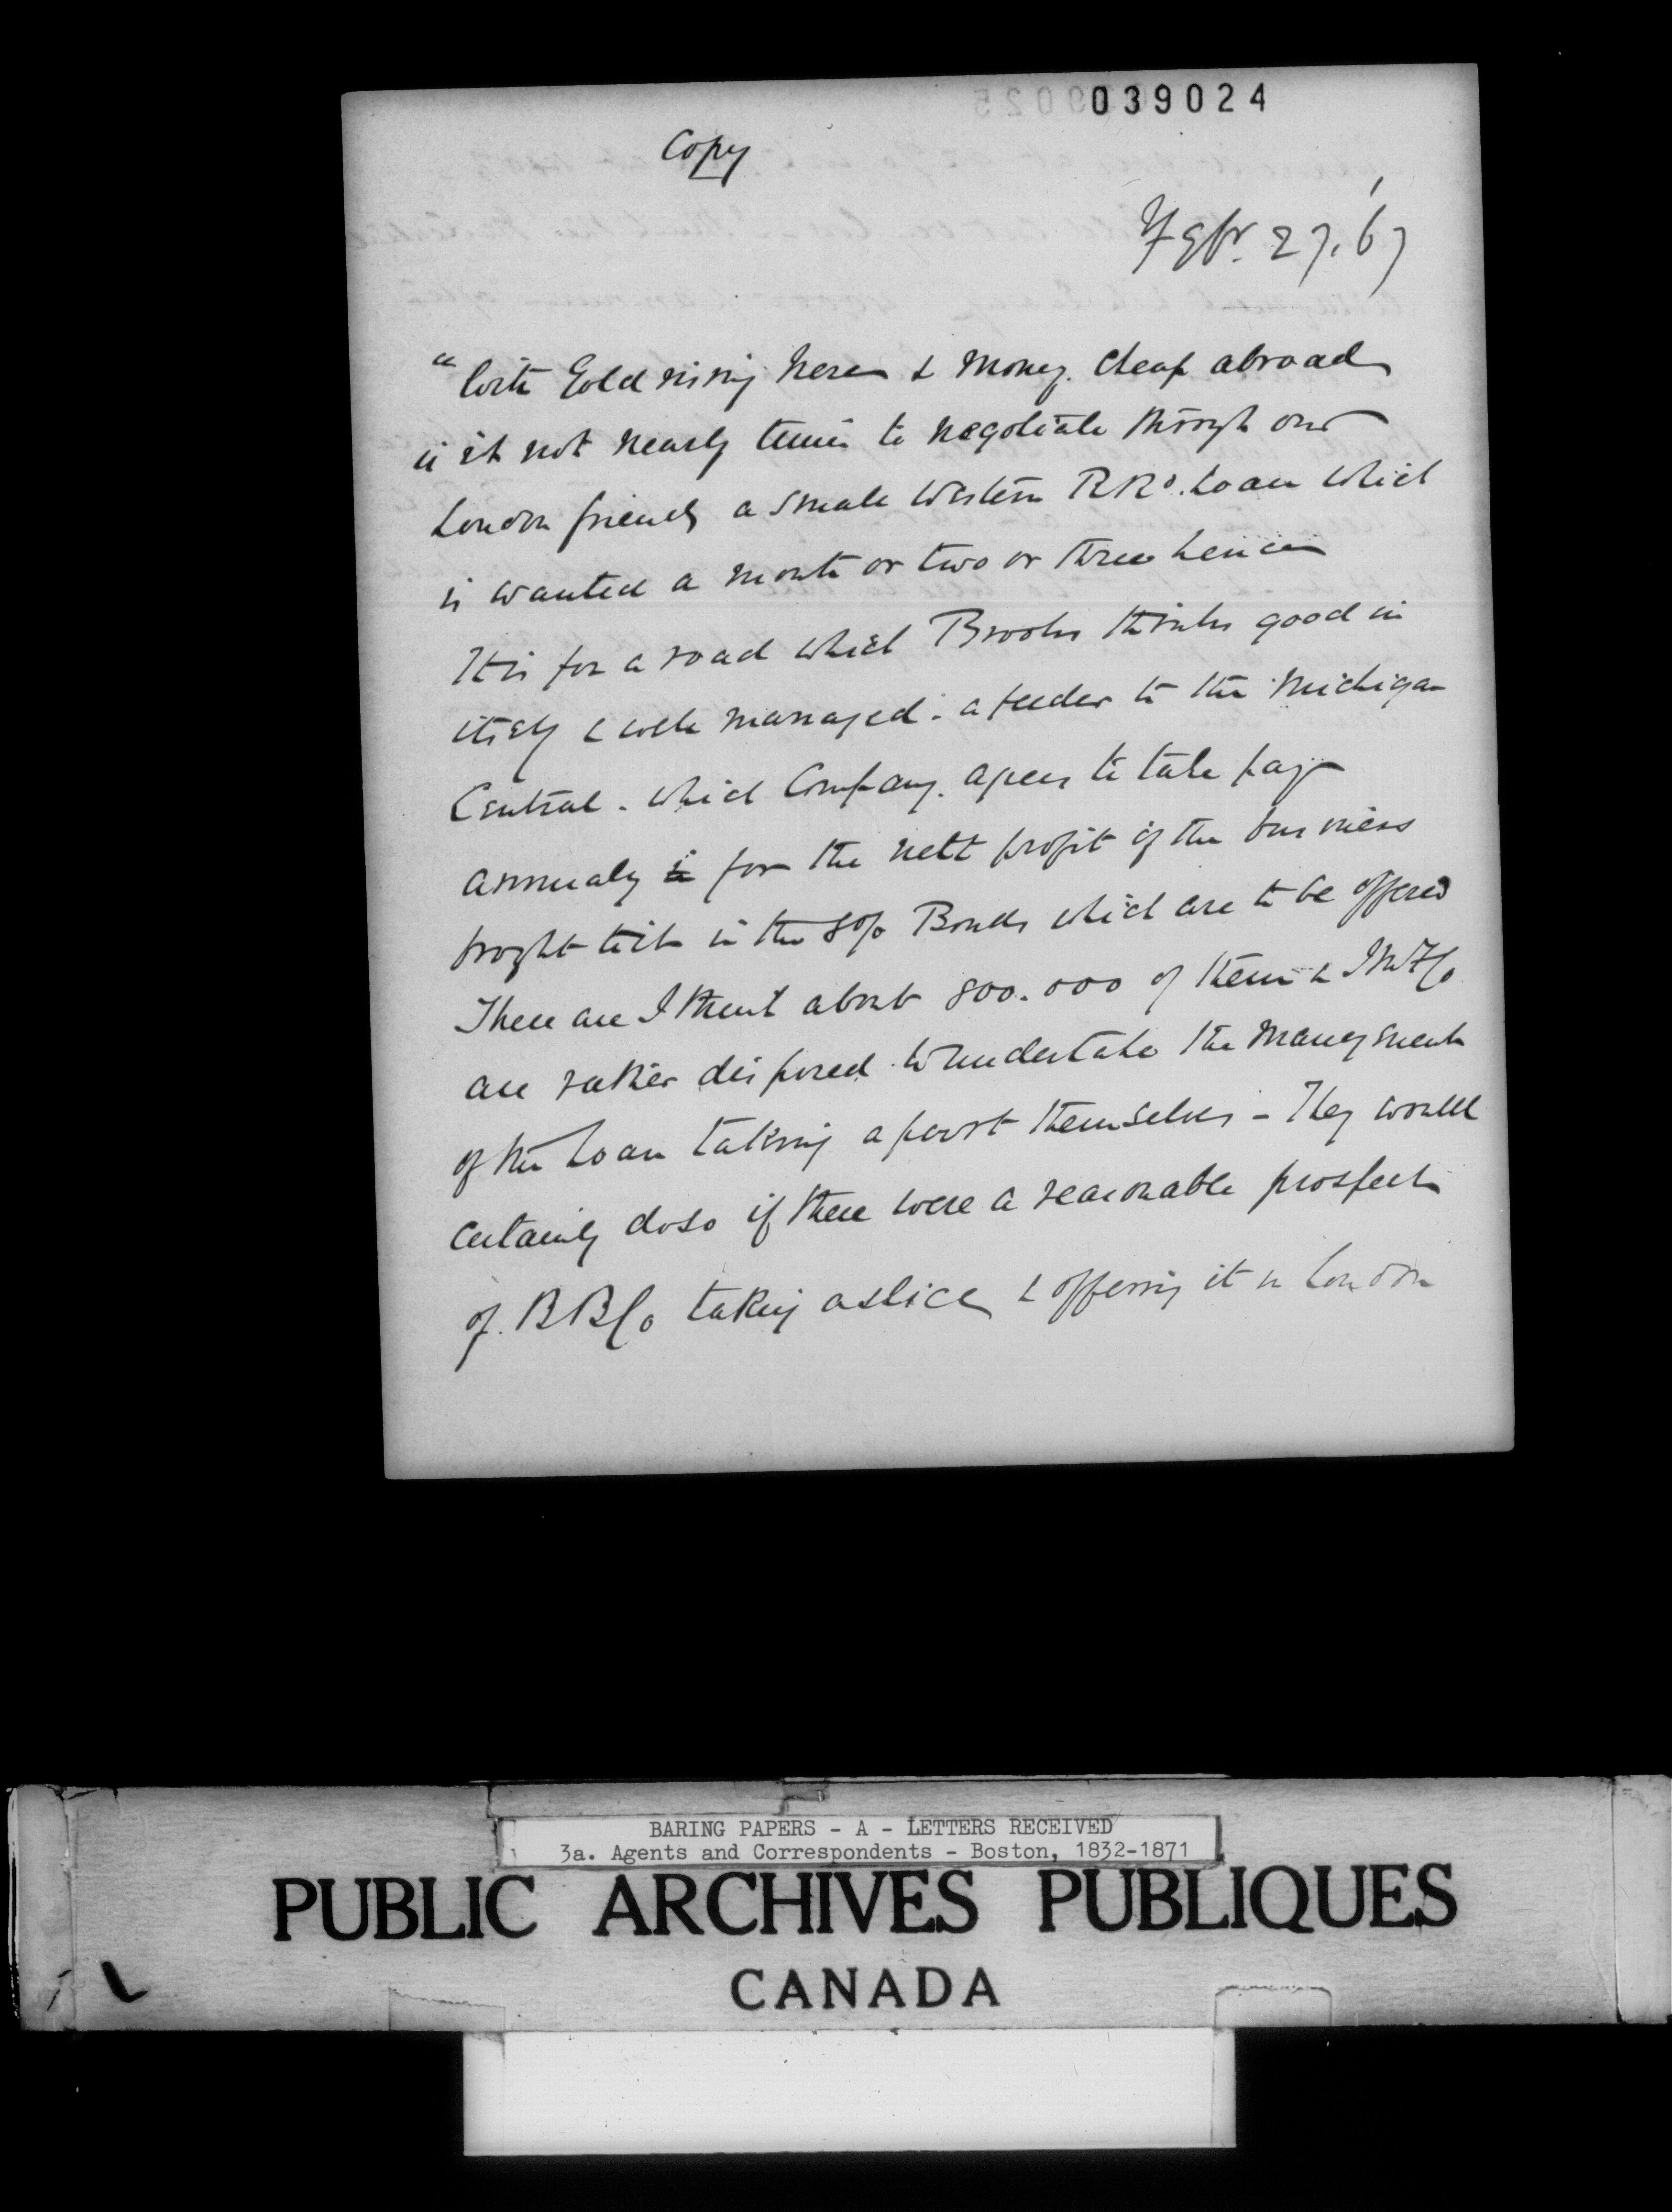 039024
Copy
Febr. 27. '67
"With Gold rising here & money cheap abroad
is it not nearly time to negotiate through our
London friends a small Western RRd. Loan which
is wanted a month or two or three hence
It is for a road which Brooks thinks good in
itself & well managed. a feeder to the Michigan
Central. which Company agrees to take pay
annualy in for the nett profit of the business
brought to it in the 8% Bonds which are to be offered
There are I think about 800.000 of them & JMF/Co
are rather disposed to undertake the management
of the Loan taking a part themselves - They would
certainly do so if there were a reasonable prospect
of BB/Co taking a slice & offering it in London
BARING PAPERS - A - LETTERS RECEIVED
3a. Agents and Correspondents - Boston, 1832-1871
PUBLIC ARCHIVES PUBLIQUES
CANADA